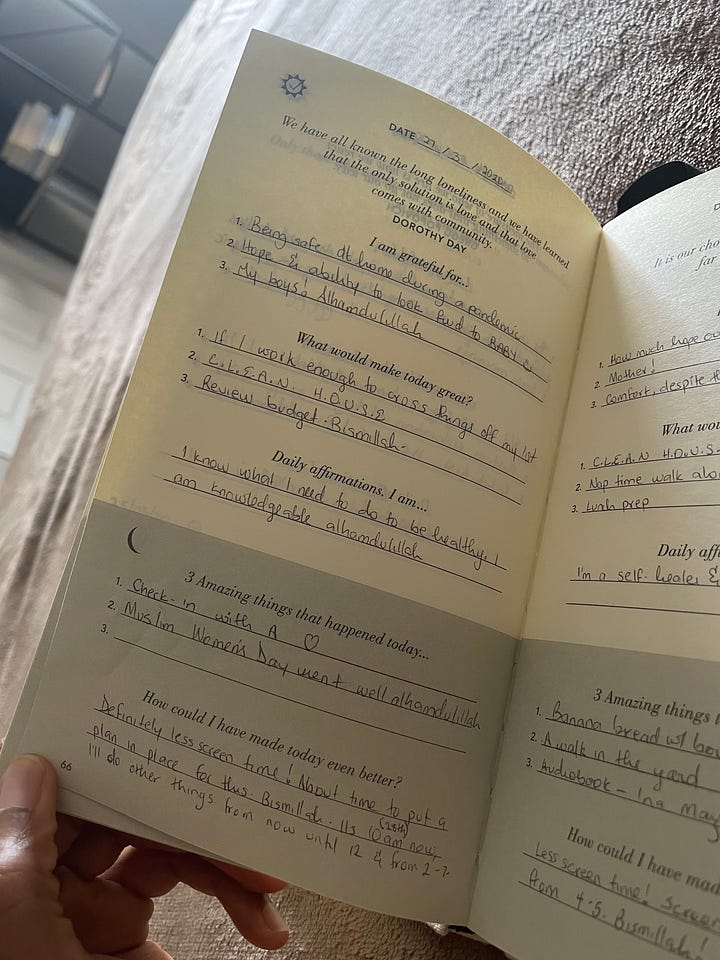 DATE 27 / 3 / 2020
We have all known the long loneliness and we have learned
that the only solution is love and that love
comes with community.
DOROTHY DAY
I am grateful for...
1. Being safe at home during a pandemic
2. Hope & ability to look fwd to BABY C.
3. My boys! Alhamdulillah
What would make today great?
1. If I work enough to cross things off my list
2. C.L.E.A.N. H.O.U.S.E
3. Review budget. Bismillah.
Daily affirmations. I am...
I know what I need to do to be healthy. I
am knowledgeable alhamdulillah
3 Amazing things that happened today...
1. Check-in with A ♡
2. Muslim Women's Day went well alhamdulillah
3.
How could I have made today even better?
Definitely less screen time! About time to put a
plan in place for this. Bismillah. Its 10am now, (28th)
I'll do other things from now until 12 & from 2-7.
66
It is our cho
far
1. How much hope ou
2. Mother!
3. Comfort, despite th
What wou
1. C.L.E.A.N H.O.U.S-
2. Nap time walk alo
3. Lunch prep
Daily affi
I'm a self-healer &
3 Amazing things t
1. Banana bread w/ bo
2. A walk in the yard
3. Audiobook - Ina May
How could I have mad
Less screen time! Screen
from 4-5. Bismillah!